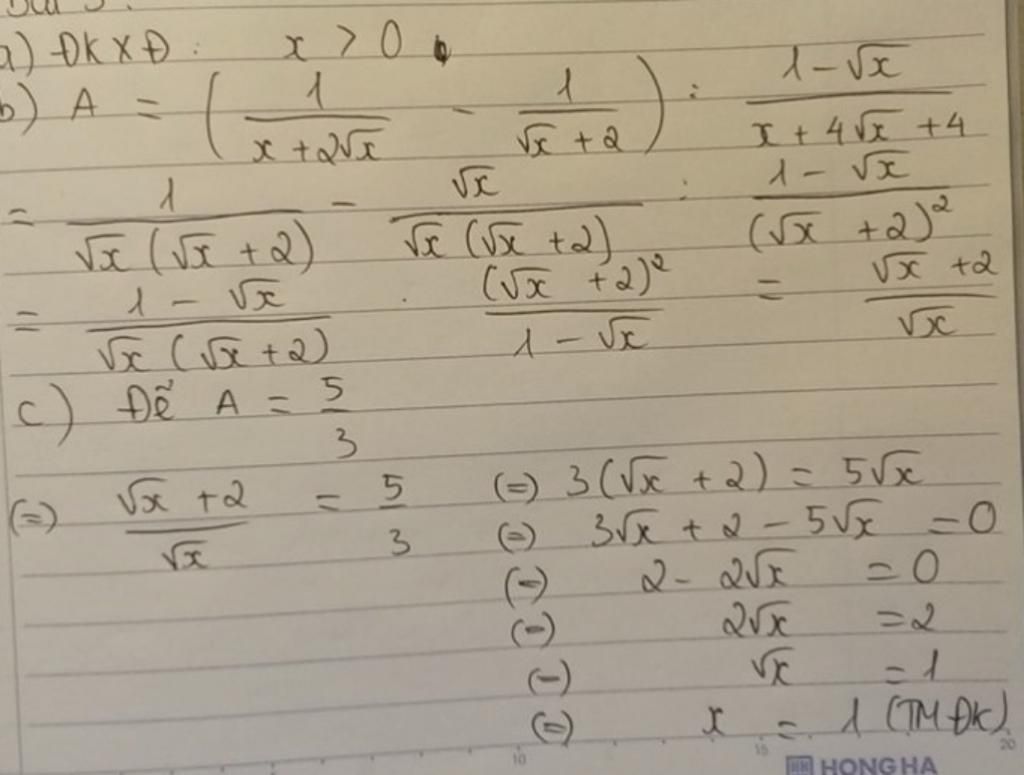 Bài 3:
a) ĐKXĐ: x > 0
b) A = (1/(x + 2√x) - 1/(√x + 2)) : (1 - √x)/(x + 4√x + 4)
= 1/(√x (√x + 2)) - √x/(√x (√x + 2)) : (1 - √x)/(√x + 2)²
= (1 - √x)/(√x (√x + 2)) . (√x + 2)²/(1 - √x) = (√x + 2)/√x
c) Để A = 5/3
(=) (√x + 2)/√x = 5/3 (=) 3(√x + 2) = 5√x
(=) 3√x + 2 - 5√x = 0
(=) 2 - 2√x = 0
(=) 2√x = 2
(=) √x = 1
(=) x = 1 (TMĐK)
10 15 20
HONG HA